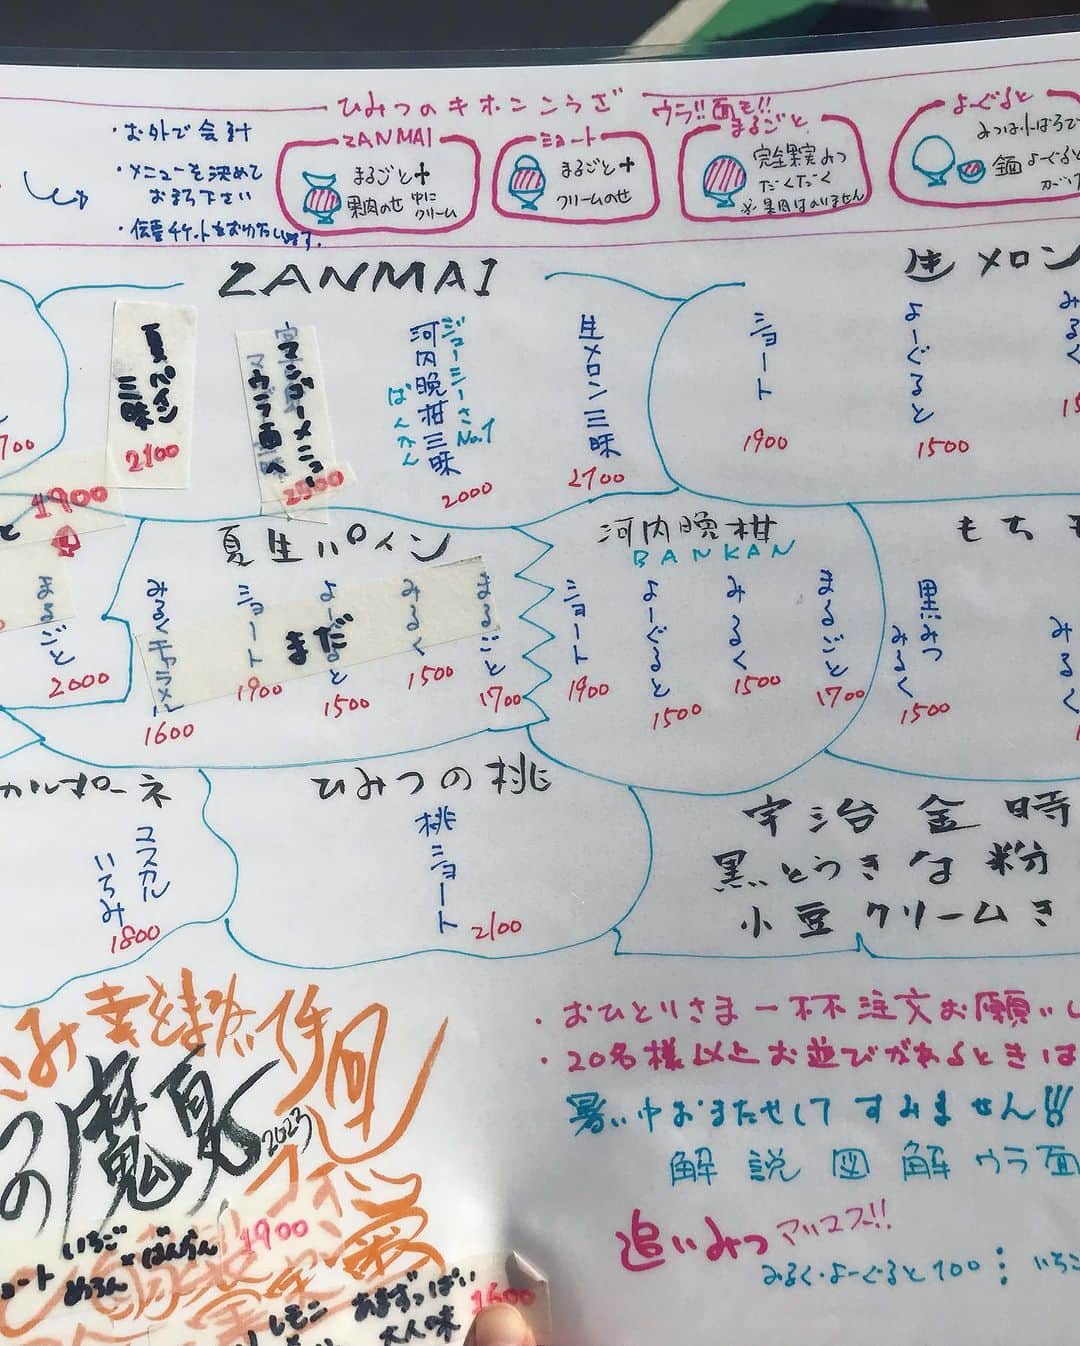 ひみつのキホンこうざ ウラ!!面も!!
・お外で会計
・メニューを決めて
おまち下さい
ZANMAI
まるごと+
果肉のせ 中に
クリーム
ショート
まるごと+
クリームのせ
まるごと
完全果実みつ
だくだく
※果肉はのりません
よーぐると
よーぐると
ZANMAI
夏パイン
三昧
2100
マンゴーメニュー
ウラ面へ
2500
ジューシーさNo.1
河内晩柑三昧
ばんかん
2000
生メロン三昧
2700
生メロン
ショート
1900
よーぐると
1500
みるく
700
1900
まるごと
2000
夏生パイン
まだ
みるくキャラメル
1600
ショート
1900
よーぐると
1500
みるく
1500
まるごと
1700
河内晩柑
BANKAN
ショート
1900
よーぐると
1500
みるく
1500
まるごと
1700
もち
黒みつ
みるく
1500
カルポーネ
マスカル
いちみ
1800
ひみつの桃
桃ショート
2100
宇治金時
黒とうきな粉
小豆クリーム
の魔夏
2023
いちご×ばんかん 1900
めろん
ショート
レモン
あまずっぱい
大人味
1600
・おひとりさま一杯注文お願い
・20名様以上お遊びがあるときは
暑い中おまたせしてすみません!!!
解説図解ウラ面
追いみつ
みるく・よーぐると100
いちご